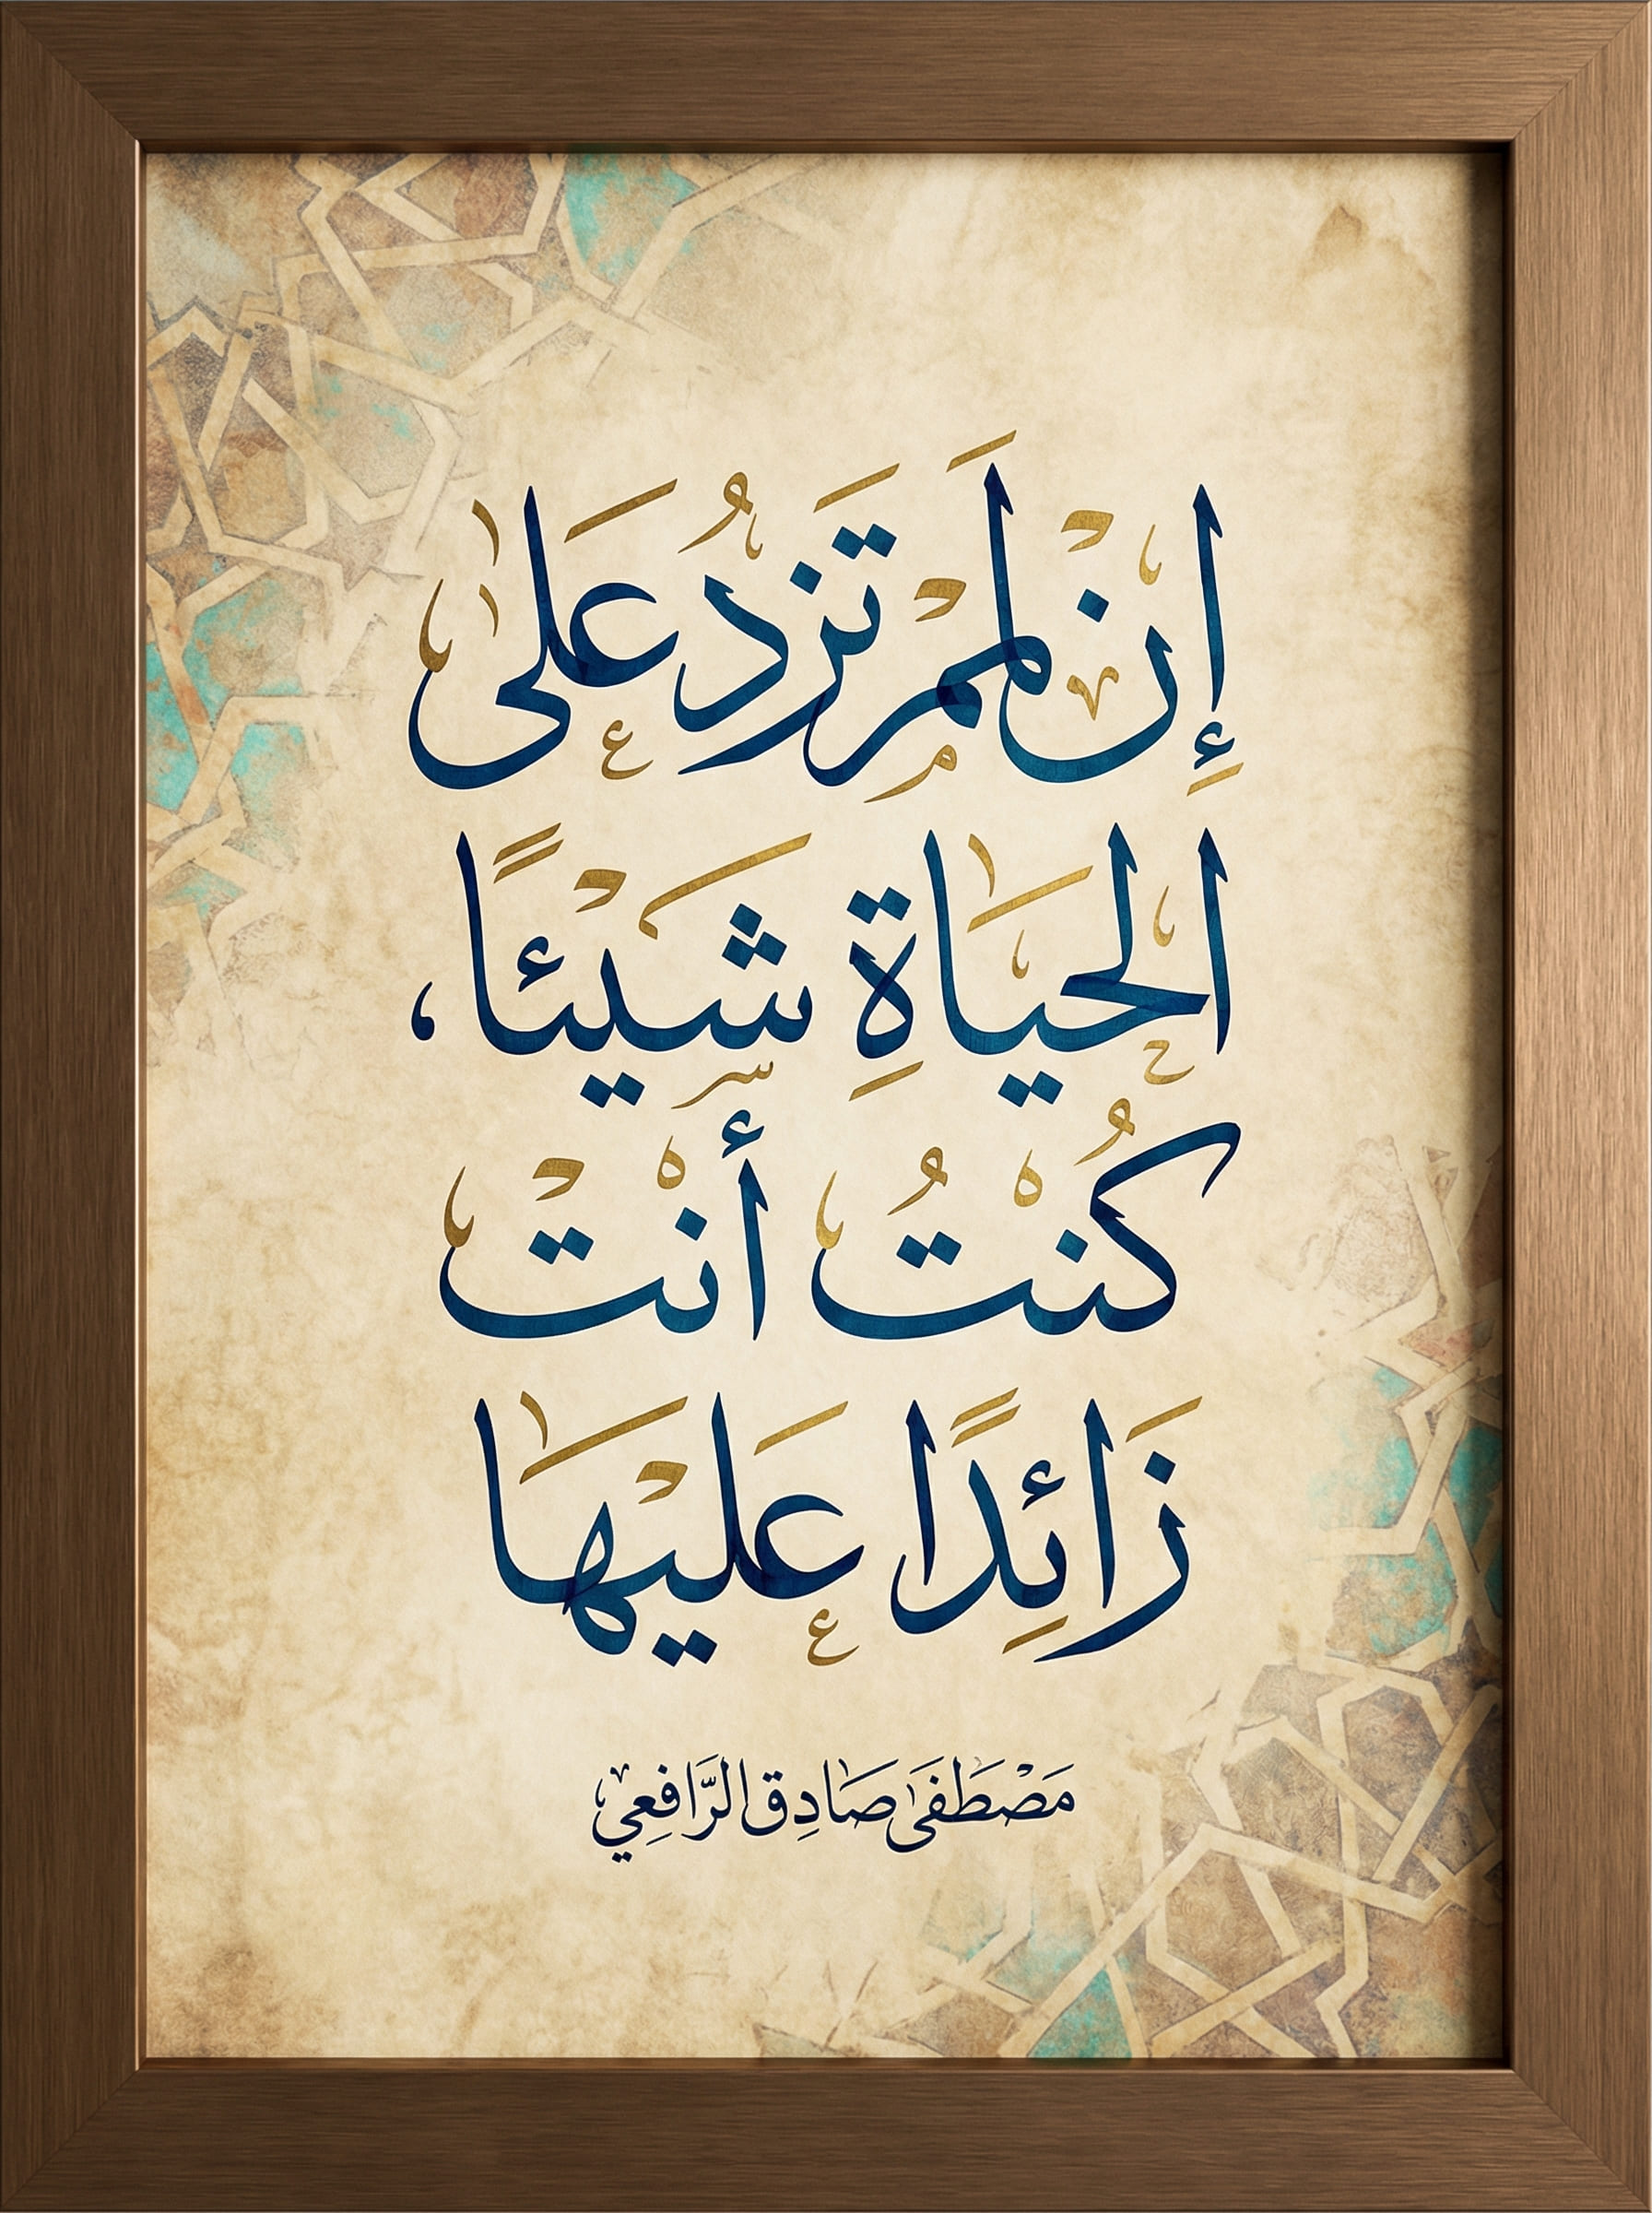 إِنْ لَمْ تَزِدُ عَلَى
الحَيَاةِ شَيْئًا،
كُنْتُ أَنْتْ
زَائِدًا عَلَيْهَا
مَصْطَفَى صَادِق الرَّافِعِي